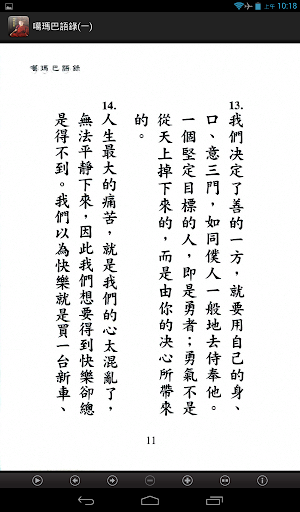 上午 10:18
噶瑪巴語錄(一)
噶瑪巴語錄
13. 我們決定了善的一方，就要用自己的身、
口、意三門，如同僕人一般地去侍奉他。
一個堅定目標的人，即是勇者；勇氣不是
從天上掉下來的，而是由你的決心所帶來
的。
14. 人生最大的痛苦，就是我們的心太混亂了，
無法平靜下來，因此我們想要得到快樂卻總
是得不到。我們以為快樂就是買一台新車、
11